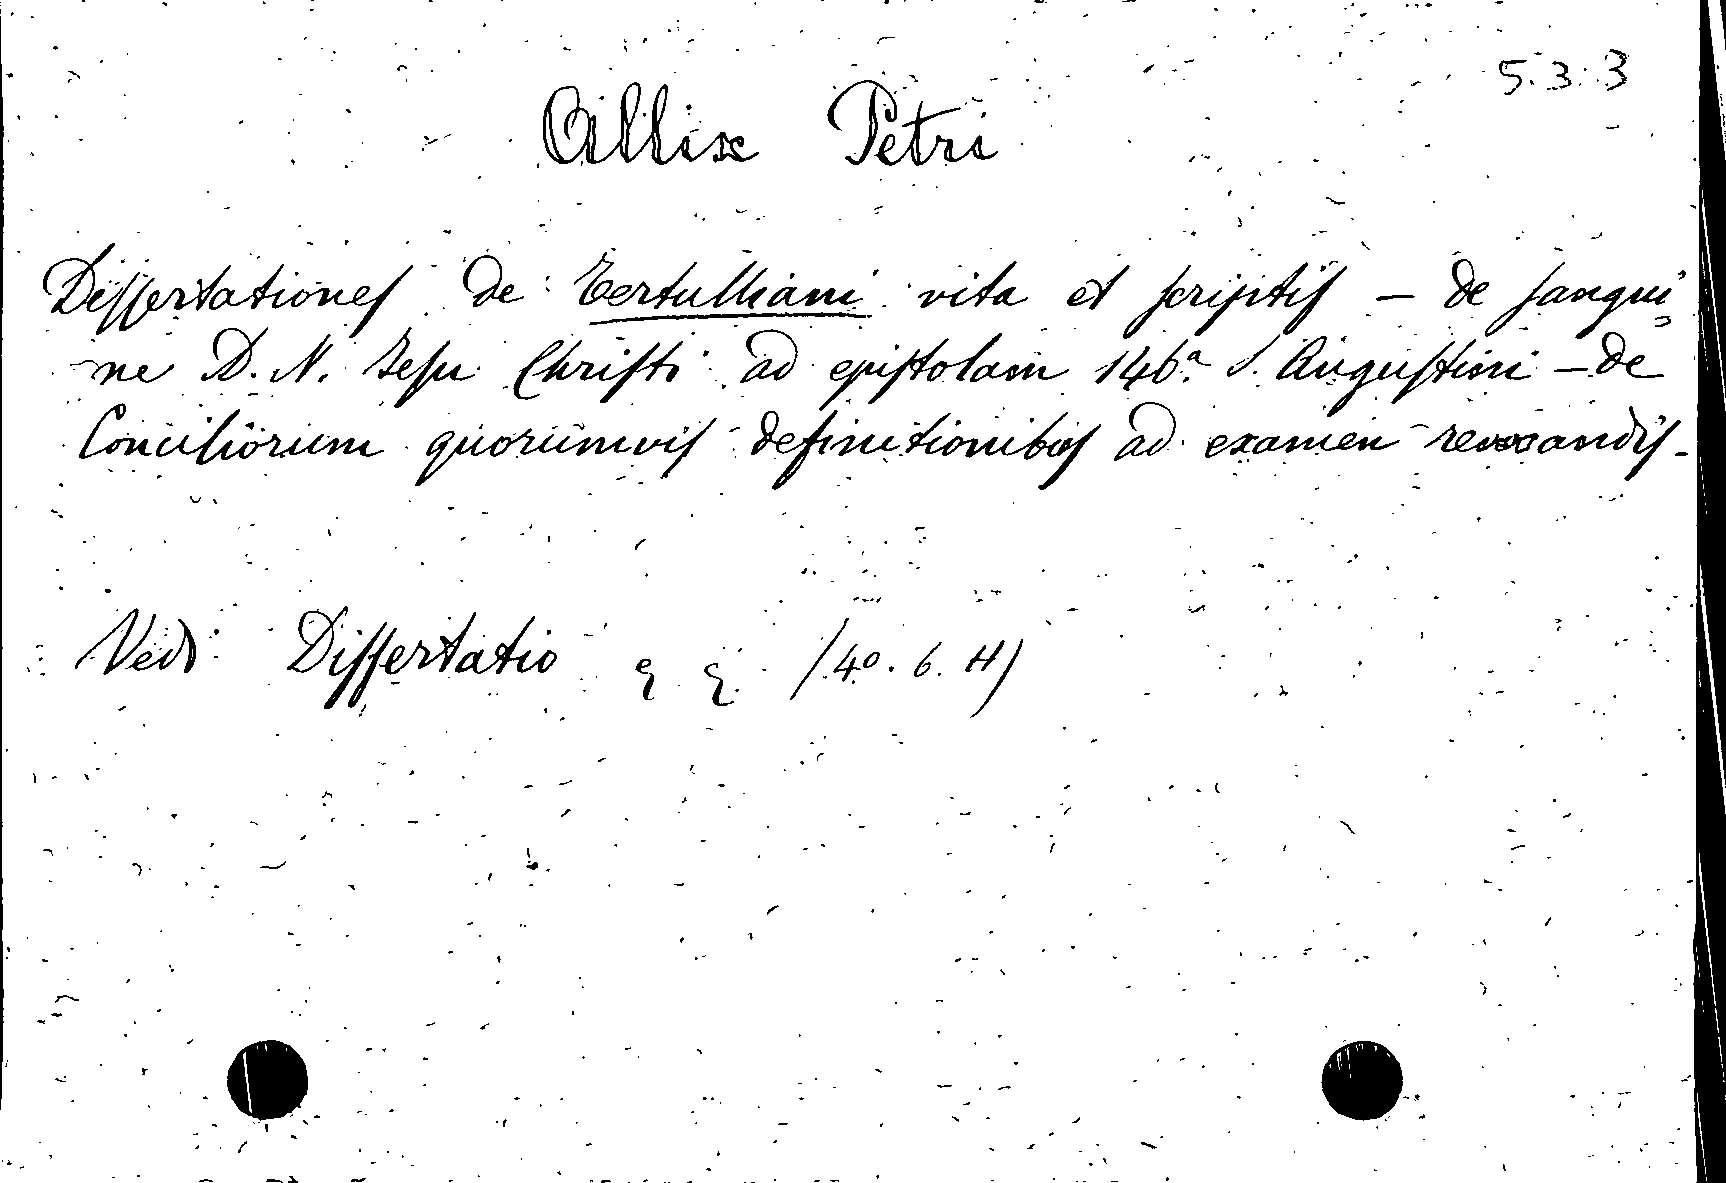 5.3.3
Allix Petri
Dissertationes de Tertulliani vita et scriptis – de sangui=
ne D. N. Jesu Christi ad epistolam 146ª S. Augustini – de
Conciliorum quorumvis definitionibus ad examen revocandis –
Vedi Dissertatio (40. 6. H)